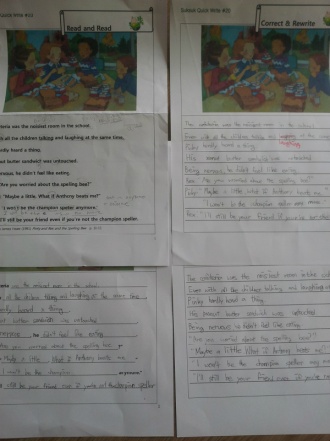 Subject: Quick Write #(3)
Read and Read
eteria was the noisiest room in the school.
ith all the children talking and laughing at the same time,
ardly heard a thing.
nut butter sandwich was untouched.
ervous, he didn't feel like eating.
"Are you worried about the spelling bee?"
"Maybe a little. What if Anthony beats me?"
I won't be the champion speller anymore."
I'll still be your friend even if you're not the champion speller."
Correct & Rewrite
The cafeteria was the noisiest room in the school
Even with all the children talking and
laughing
Pinky hardly heard a thing.
His peanut butter sandwich was untouched
Being nervous, he didn't feel like eating.
"Are you worried about the spelling bee?"
"Maybe a little what if Anthony beats me."
"I won't be the champion
"I'll still be your friend if you're not
was the noisiest room in the school
all the children talking and laughing at the same time
hardly heard a thing.
butter sandwich was untouched
he didn't feel like eating.
you worried about the spelling bee
Maybe a little. What if Anthony beats me
I won't be the champion
anymore."
still be your friend even if you're not the champion speller
The cafeteria was the noisiest room in the
Even with all the children talking and laughing
Pinky hardly heard a thing
His peanut butter sandwich was untouched
Being nervous he didn't feel like eating
"Are you worried about the spelling bee"
"Maybe a little What if Anthony beats me"
I won't be the champion speller
"I'll still be your friend even if you're